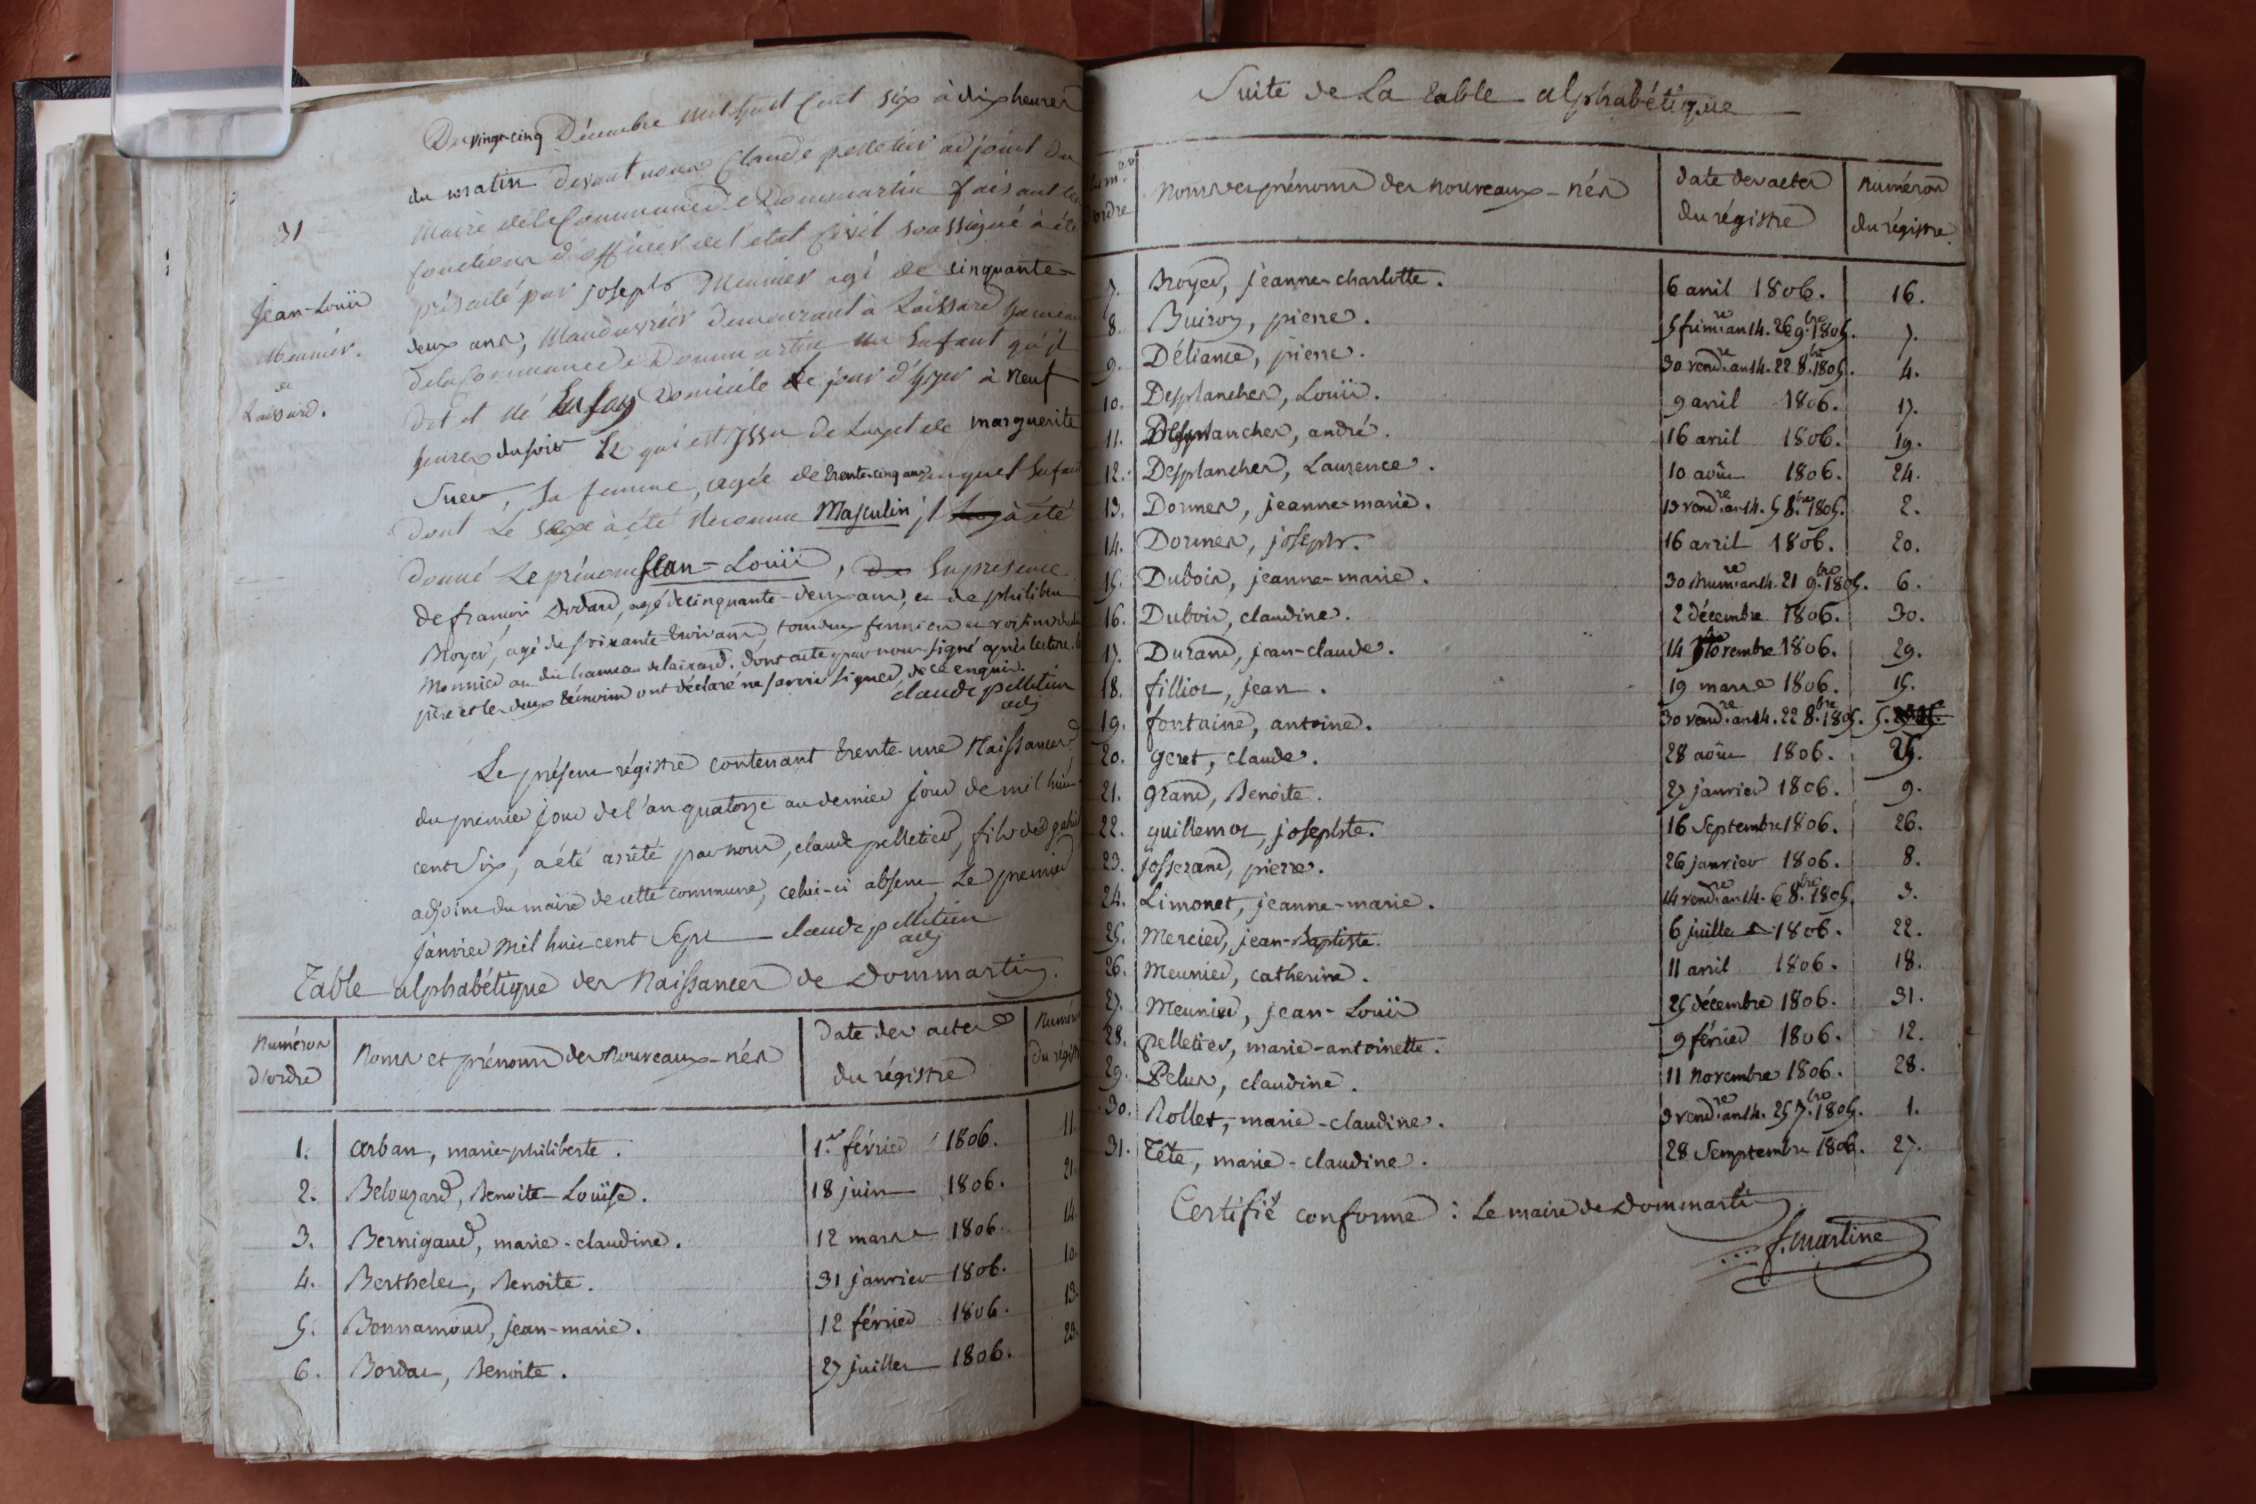 31
Jean-Louis
Meunier.
de
Laissard.
Du vingt-cinq Décembre mil huit Cent six à dix heures
du matin devant nous Claude pelletier adjoint du
Maire de la Commune de Dommartin faisant les
fonctions d'officier de l'état Civil soussigné à été
présenté par joseph Meunier agé de cinquante-
deux ans, Manouvrier demeurant à Laissard hameau
de la Commune de Dommartin un Enfant qu'il
dit et né En son Domicile le jour d'hyer à neuf
heures du soir Et qui est Issu De Luy et de marguerite
Suer, sa femme, agée de trente-cinq ans, auquel Enfant
dont Le sexe à été Reconnu Masculin, il à été
donné Le prénom Jean-Louis, En présence
de françois Dodard, agé de cinquante-deux ans, et de philibert
Broyer, agé de soixante-trois ans, tous deux fermiers et voisins dudit
Meunier au dit hameau de laissard. dont acte par nous signé après lecture. le
père et les deux témoins ont déclaré ne savoir signer, de ce enquis.
claude pelletier
adj
Le présent régistre contenant trente-une Naissances
du premier jour de l'an quatorze au dernier jour de mil huit
cent Six, a été arrêté par nous, claude pelletier, fils de
adjoint du maire de cette commune, celui-ci absent, Le premier
janvier mil huit cent Sept claude pelletier
adj
Table alphabétique des Naissances de Dommartin.
Numéros d'ordre | Noms et prénoms des nouveaux-nés | date des actes du régistre | Numéros du régistre
1. arban, marie-philiberte. 1.er février 1806. 11.
2. Belouzard, Benoite-Louïse. 18 juin 1806. 21.
3. Bernigaud, marie-claudine. 12 mars 1806. 14.
4. Berthelet, Benoite. 31 janvier 1806. 10.
5. Bonnamour, jean-marie. 12 février 1806. 13.
6. Bordat, Benoite. 27 juillet 1806. 23.
Suite de La table alphabétique
Num.os d'ordre | Noms et prénoms des nouveaux-nés | date des actes du régistre | numéros du régistre
7. Broyer, jeanne-charlotte. 6 avril 1806. 16.
8. Buiron, pierre. 5 frim.re an 14. 26 9.bre 1805. 7.
9. Déliance, pierre. 30 vend.re an 14. 22 8.bre 1805. 4.
10. Desplanches, Louis. 9 avril 1806. 17.
11. Desplanches, andré. 16 avril 1806. 19.
12. Desplanches, Laurence. 10 août 1806. 24.
13. Dormes, jeanne-marie. 13 vend.re an 14. 5 8.bre 1805. 2.
14. Dormes, joseph. 16 avril 1806. 20.
15. Dubois, jeanne-marie. 30 brum.re an 14. 21 9.bre 1805. 6.
16. Dubois, claudine. 2 décembre 1806. 30.
17. Durand, jean-claude. 14 Novembre 1806. 29.
18. filliot, jean. 19 mars 1806. 15.
19. fontaine, antoine. 30 vend.re an 14. 22 8.bre 1805. 5.
20. geret, claude. 28 août 1806. 25.
21. grand, Benoite. 27 janvier 1806. 9.
22. guillemot, josephte. 16 Septembre 1806. 26.
23. josserand, pierre. 26 janvier 1806. 8.
24. Limonet, jeanne-marie. 14 vend.re an 14. 6 8.bre 1805. 3.
25. Mercier, jean-Baptiste. 6 juillet 1806. 22.
26. Meunier, catherine. 11 avril 1806. 18.
27. Meunier, jean-Louis 25 décembre 1806. 31.
28. pelletier, marie-antoinette. 9 février 1806. 12.
29. Pelus, claudine. 11 novembre 1806. 28.
30. Rollet, marie-claudine. 3 vend.re an 14. 25 7.bre 1805. 1.
31. Tête, marie-claudine. 28 Semptembre 1806. 27.
Certifié conforme : Le maire de Dommartin
f. martine